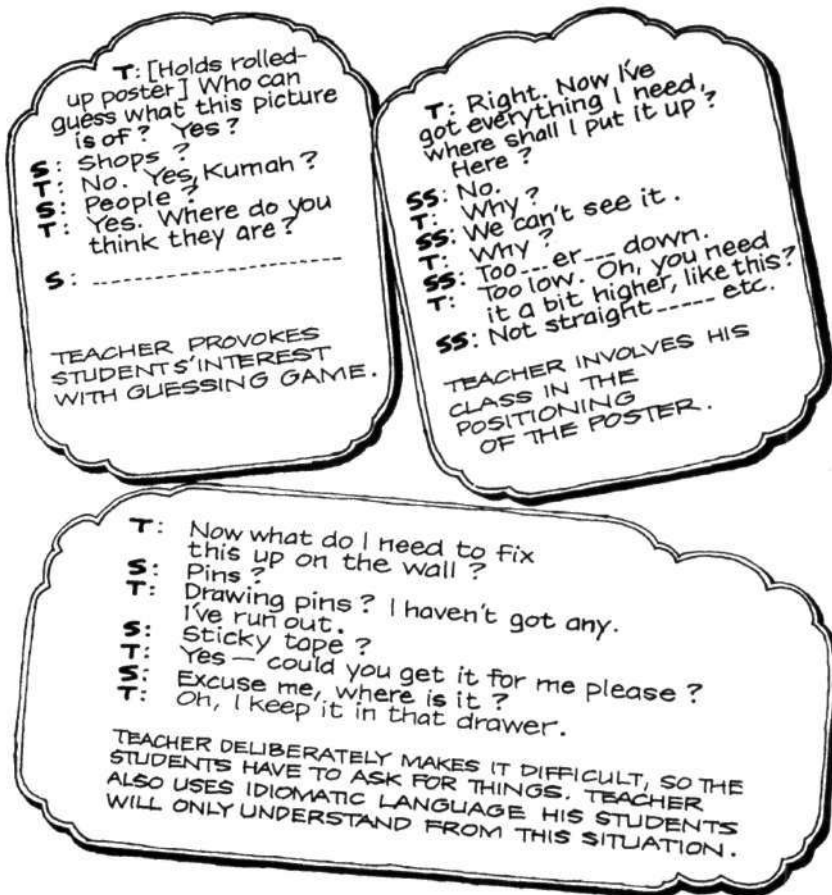 T: [Holds rolled-
up poster] Who can
guess what this picture
is of? Yes?
S: Shops?
T: No. Yes, Kumah?
S: People?
T: Yes. Where do you
think they are?
S: -----------------------
TEACHER PROVOKES
STUDENTS' INTEREST
WITH GUESSING GAME.
T: Right. Now I've
got everything I need,
where shall I put it up?
Here?
SS: No.
T: Why?
SS: We can't see it.
T: Why?
SS: Too---er--- down.
T: Too low. Oh, you need
it a bit higher, like this?
SS: Not straight ----- etc.
TEACHER INVOLVES HIS
CLASS IN THE
POSITIONING
OF THE POSTER.
T: Now what do I need to fix
this up on the wall?
S: Pins?
T: Drawing pins? I haven't got any.
I've run out.
S: Sticky tape?
T: Yes — could you get it for me please?
S: Excuse me, where is it?
T: Oh, I keep it in that drawer.
TEACHER DELIBERATELY MAKES IT DIFFICULT, SO THE
STUDENTS HAVE TO ASK FOR THINGS. TEACHER
ALSO USES IDIOMATIC LANGUAGE HIS STUDENTS
WILL ONLY UNDERSTAND FROM THIS SITUATION.